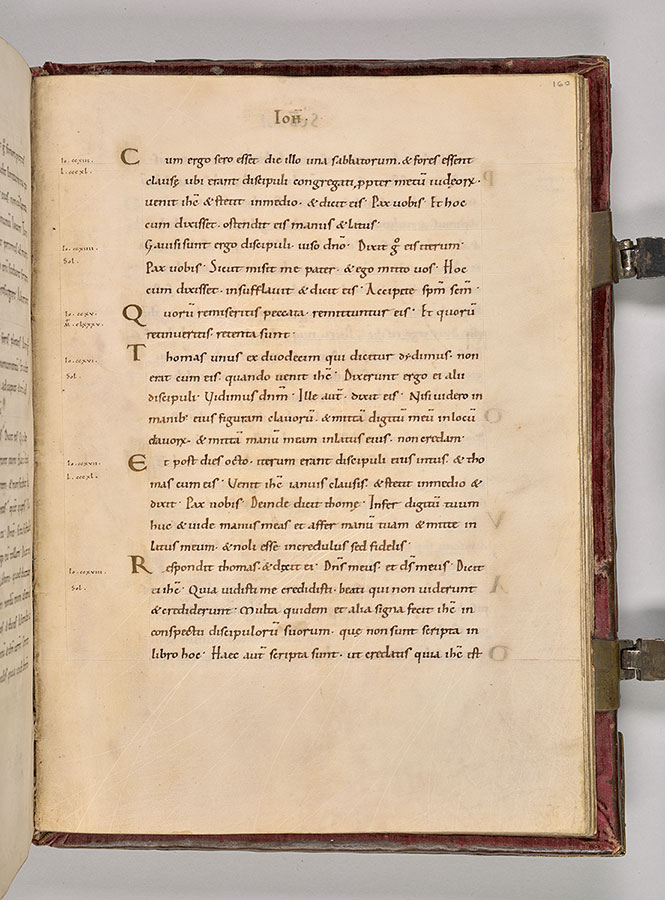 160
Ioh̄.
Io. ccxiii.
L. cccxl.
Cum ergo sero esset die illo una sabbatorum. & fores essent
clausę ubi erant discipuli congregati, ꝓpter metū iudeoꝝ.
uenit ihc̄ & stetit inmedio. & dicit eis. Pax uobis. Et hoc
cum dixisset. ostendit eis manus & latus.
Io. ccxiiii.
Sol.
Gauisi sunt ergo discipuli. uiso dn̄o. Dixit g̊ eis iterum.
Pax uobis. Sicut misit me pater. & ego mitto uos. Hoc
cum dixisset. insufflauit & dicit eis. Accipete spm̄ scm̄.
Io. ccxv.
M̄. clxxxv.
Quorū remiseritis peccata. remittuntur eis. Et quorū
retinueritis. retenta sunt.
Io. ccxvi.
Sol.
Thomas unus ex duodecem qui dicitur dydimus. non
erat cum eis. quando uenit ihc̄. Dixerunt ergo ei alii
discipuli. Uidimus dnm̄. Ille aut̄. dixit eis. Nisi uidero in
manib; eius figuram clauorū. & mittā digitū meū in locū
clauoꝝ. & mittā manū meam inlatus eius. non credam.
Io. ccxvii.
L. cccxl.
Et post dies octo. iterum erant discipuli eius intus. & tho
mas cum eis. Uenit ihc̄ ianuis clausis. & stetit inmedio &
dixit. Pax uobis. Deinde dicit thomę. Infer digitū tuum
huc & uide manus meas et affer manū tuam & mitte in
latus meum. & noli esse incredulus sed fidelis.
Io. ccxviii.
Sol.
Respondit thomas. & dixit ei. Dn̄s meus. et d̄s meus. Dicit
ei ihc̄. Quia uidisti me credidisti. beati qui non uiderunt
& crediderunt. Multa quidem et alia signa fecit ihc̄ in
conspectu discipulorū suorum. quę non sunt scripta in
libro hoc. Haec aut̄ scripta sunt. ut credatis quia ihc̄ est